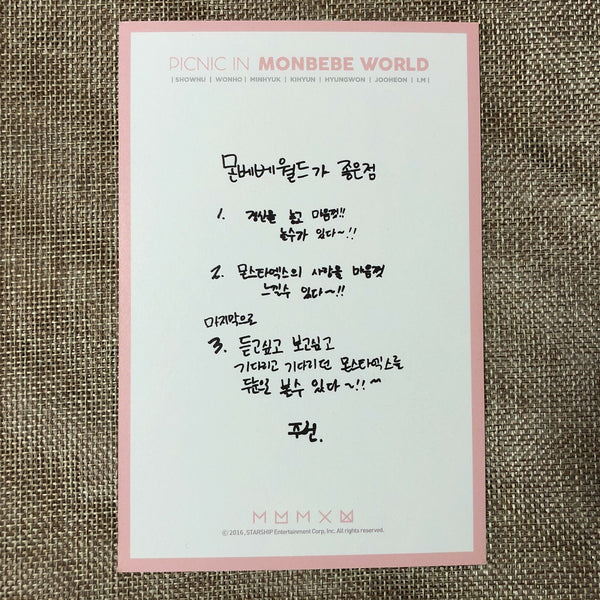 PICNIC IN MONBEBE WORLD
| SHOWNU | WONHO | MINHYUK | KIHYUN | HYUNGWON | JOOHEON | I.M |
몬베베월드가 좋은점
1. 정신을 놓고 마음껏!!
놀수가 있다~!!
2. 몬스타엑스의 사랑을 마음껏
느낄수 있다~!!
마지막으로
3. 듣고싶고 보고싶고
기다리고 기다리던 몬스타엑스를
두눈으로 볼수 있다~!! ^^
주헌.
© 2016, STARSHIP Entertainment Corp, Inc. All rights reserved.